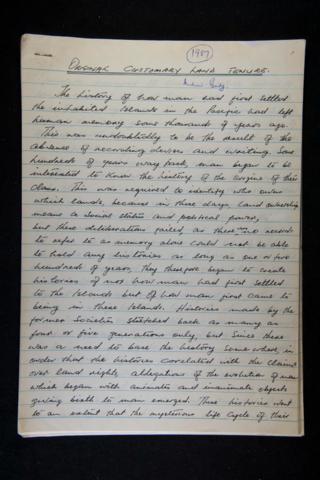 1987
ORIGINAL CUSTOMARY LAND TENURE.
The history of how man had first settled
the inhabited Islands in the Pacific had left
human memory some thousands of years ago.
This was undoubtedly to be the result of the
absence of recording devices and writing. Some
hundreds of years way back, man began to be
interested to know the history of the origins of their
clans. This was required to identify who owns
which lands, because in those days, land ownership
means a social status and political power,
but these deliberations failed as there were no records
to refer to as memory alone could not be able
to hold any histories as long as one or two
hundreds of years, They therefore began to create
histories of not how man had first settled
to the Islands but of how man first came to
being in these Islands. Histories made by the
former Societies stretched back as many as
four or five generations only, but since there
was a need to base the history somewhere in
order that the histories correlated with the claims
over land rights, allegations of the evolution of man
which began with animate and inanimate objects
giving birth to man emerged. These histories went
to an extent that the mysterious life cycle of their